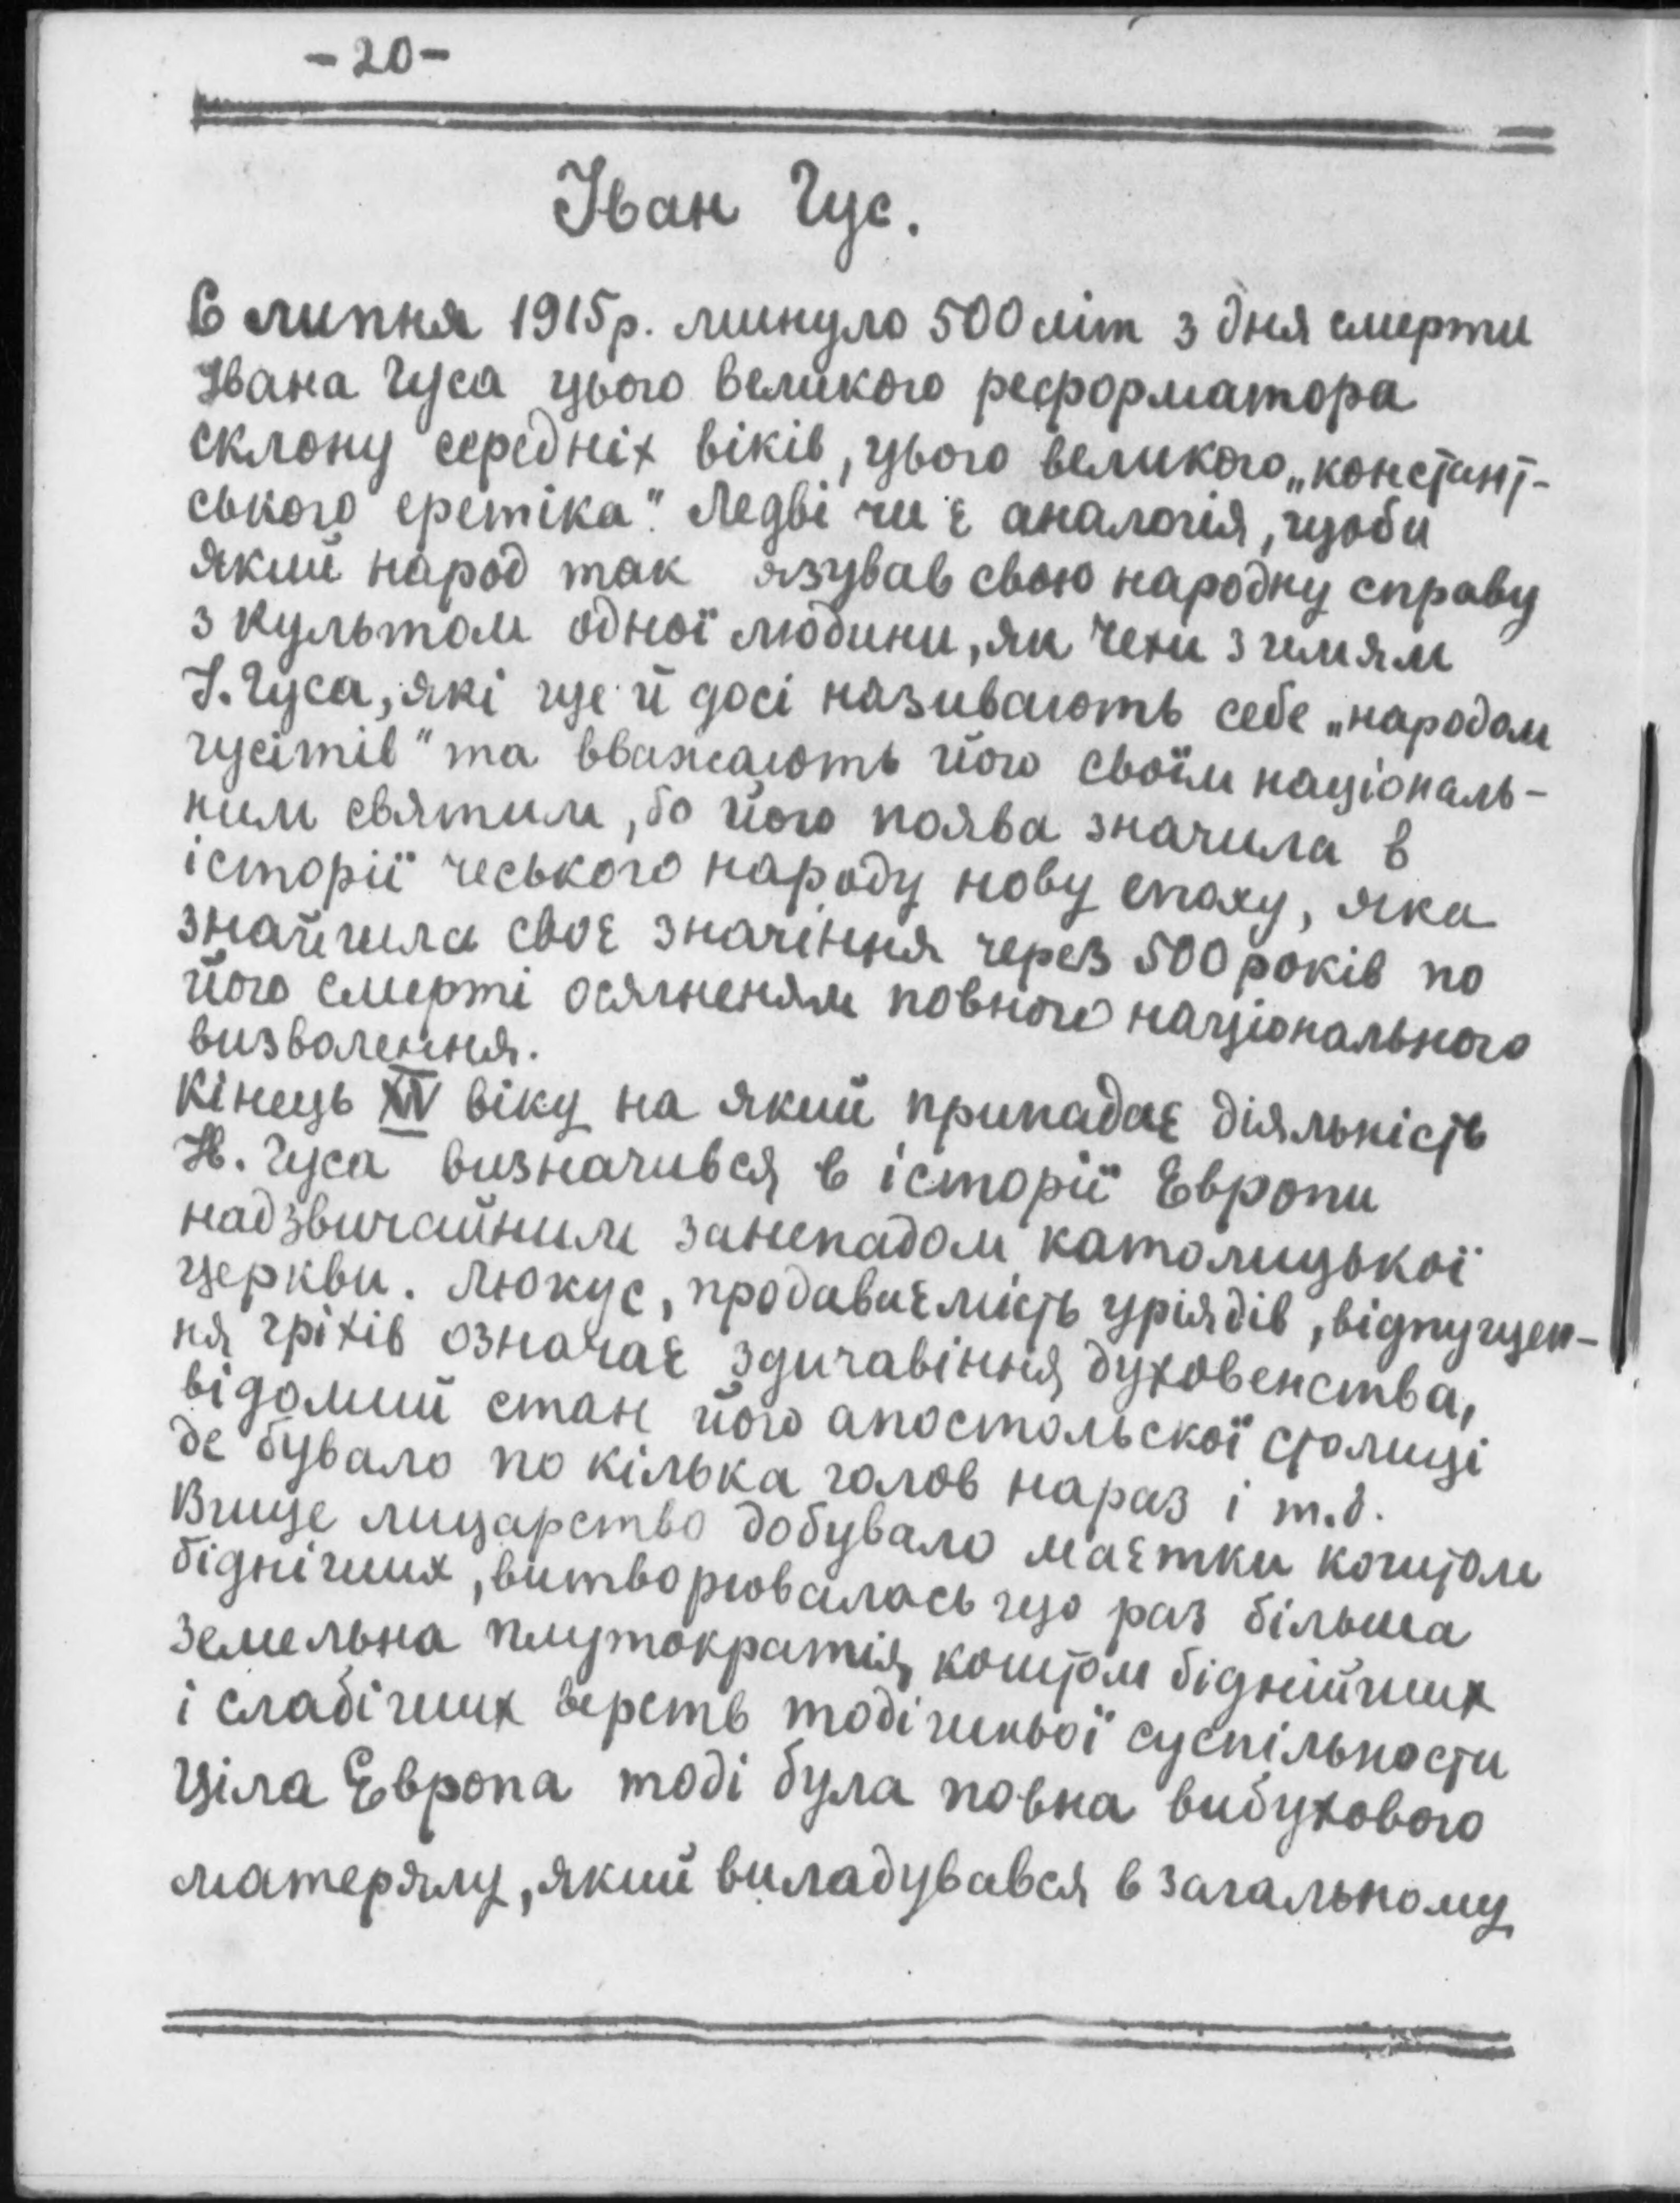 -20-
Іван Гус.
6 липня 1915р. минуло 500 літ з дня смерти
Івана Гуса цього великого реформатора
склону середніх віків, цього великого „констант-
ського еретіка". Ледві чи є аналогія, щоби
який народ так язував свою народну справу
з культом одної людини, як Чехи з імям
І. Гуса, які ще й досі називають себе „народом
гусітів" та вважають його своїм національ-
ним святим, бо його поява значила в
історії чеського народу нову епоху, яка
знайшла своє значіння через 500 років по
його смерті осягненям повного національного
визволення.
Кінець XIV віку на який припадає діяльність
Ів. Гуса визначився в історії Европи
надзвичайним занепадом католицької
церкви. Люкус, продаваємість урядів, відпущен-
ня гріхів означає здичавіння духовенства,
відомий стан його апостольскої столиці
де бувало по кілька голов нараз і т.д.
Вище лицарство добувало маєтки коштом
бідніших, витворювалась що раз більша
земельна плутократія коштом біднійших
і слабіших верств тодішньої суспільности
Ціла Европа тоді була повна вибухового
матерялу, який виладувався в загальному